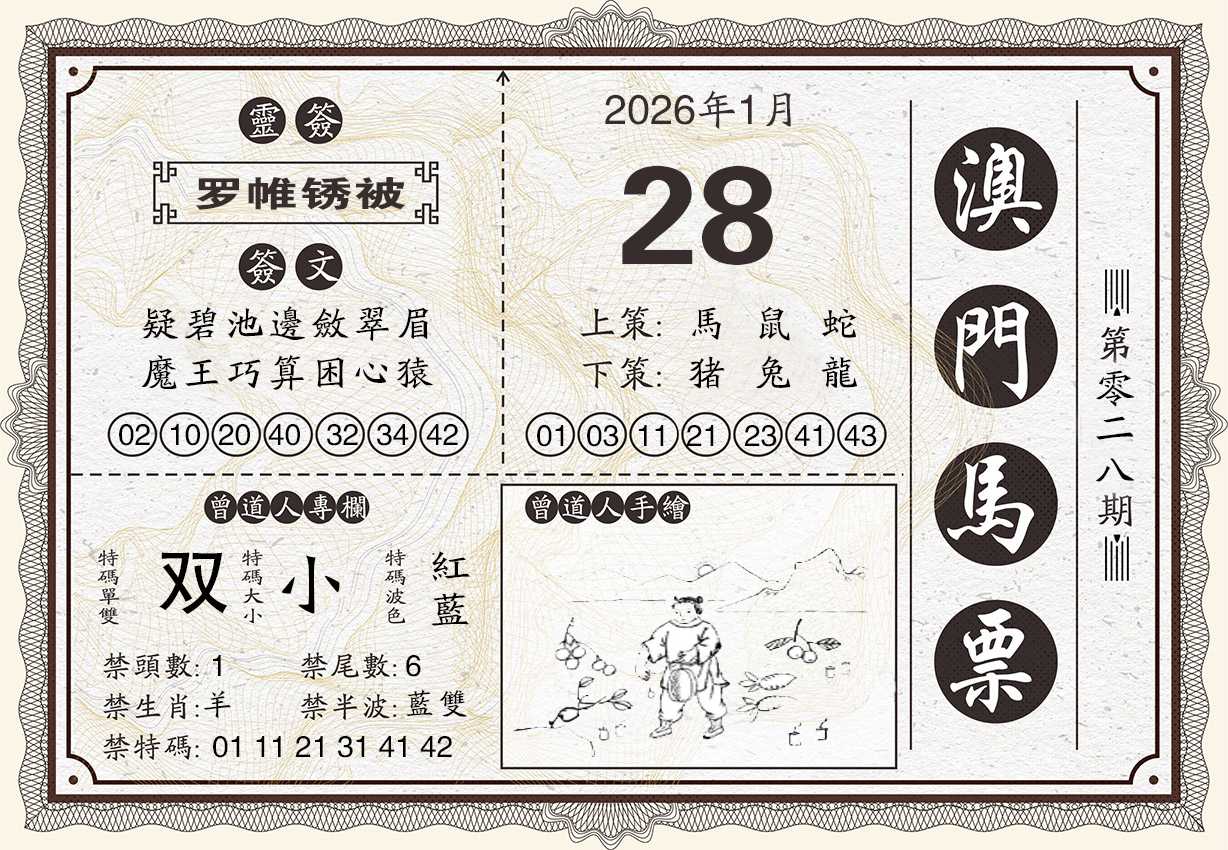 靈簽
罗帷锈被
簽文
疑碧池邊斂翠眉
魔王巧算困心猿
02 10 20 40 32 34 42
2026年1月
28
上策: 馬 鼠 蛇
下策: 猪 兔 龍
01 03 11 21 23 41 43
曾道人專欄
特碼單雙 双 特碼大小 小 特碼波色 紅藍
禁頭數: 1 禁尾數: 6
禁生肖: 羊 禁半波: 藍雙
禁特碼: 01 11 21 31 41 42
曾道人手繪
澳門馬票
第零二八期